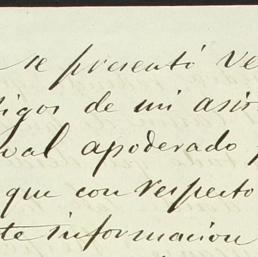 se presentó Ve
tigos de mi asis
val apoderado
que con respecto
te informacion